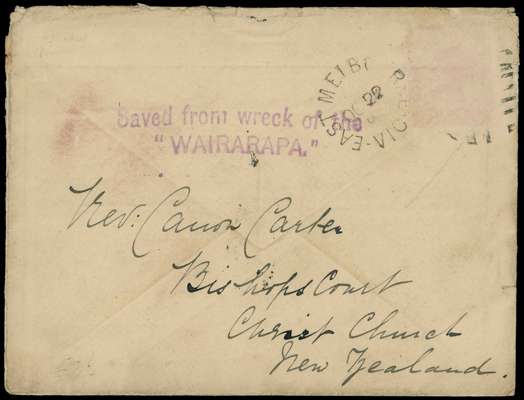 Saved from wreck of the
"WAIRARAPA."
OC 22
Rev: Canon Carter
Bishops Court
Christ Church
New Zealand.